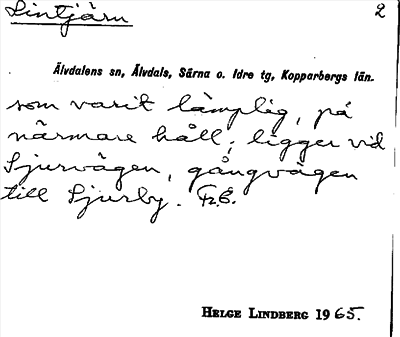 Lintjärn 2
Älvdalens sn, Älvdals, Särna o. Idre tg, Kopparbergs län.
som varit lämplig, på
närmare håll; ligger vid
Sjurvägen, gångvägen
till Sjurby. Fr.E.
HELGE LINDBERG 1965.